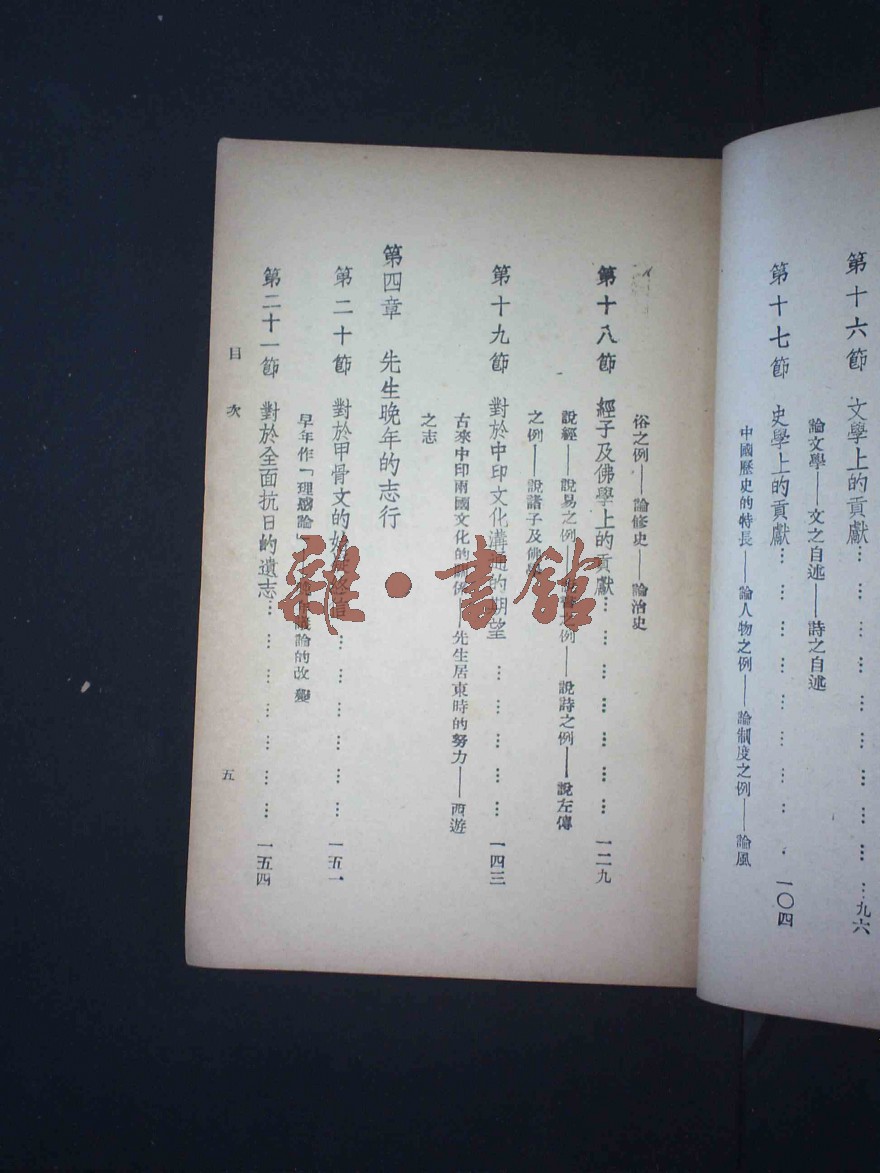 第十六節 文學上的貢獻………………………九六
論文學——文之自述——詩之自述
第十七節 史學上的貢獻………………………一〇四
中國歷史的特長——論人物之例——論制度之例——論風
俗之例——論修史——論治史
第十八節 經子及佛學上的貢獻………………………一二九
說經——說易之例——說書之例——說詩之例——說左傳
之例——說諸子及佛學
第十九節 對於中印文化溝通的期望………………………一四三
古來中印兩國文化的關係——先生居東時的努力——西遊
之志
第四章 先生晚年的志行
第二十節 對於甲骨文的………………………一五一
早年作「理惑論」議論的改變
第二十一節 對於全面抗日的遺志………………………一五四
目次
五
雜·書館